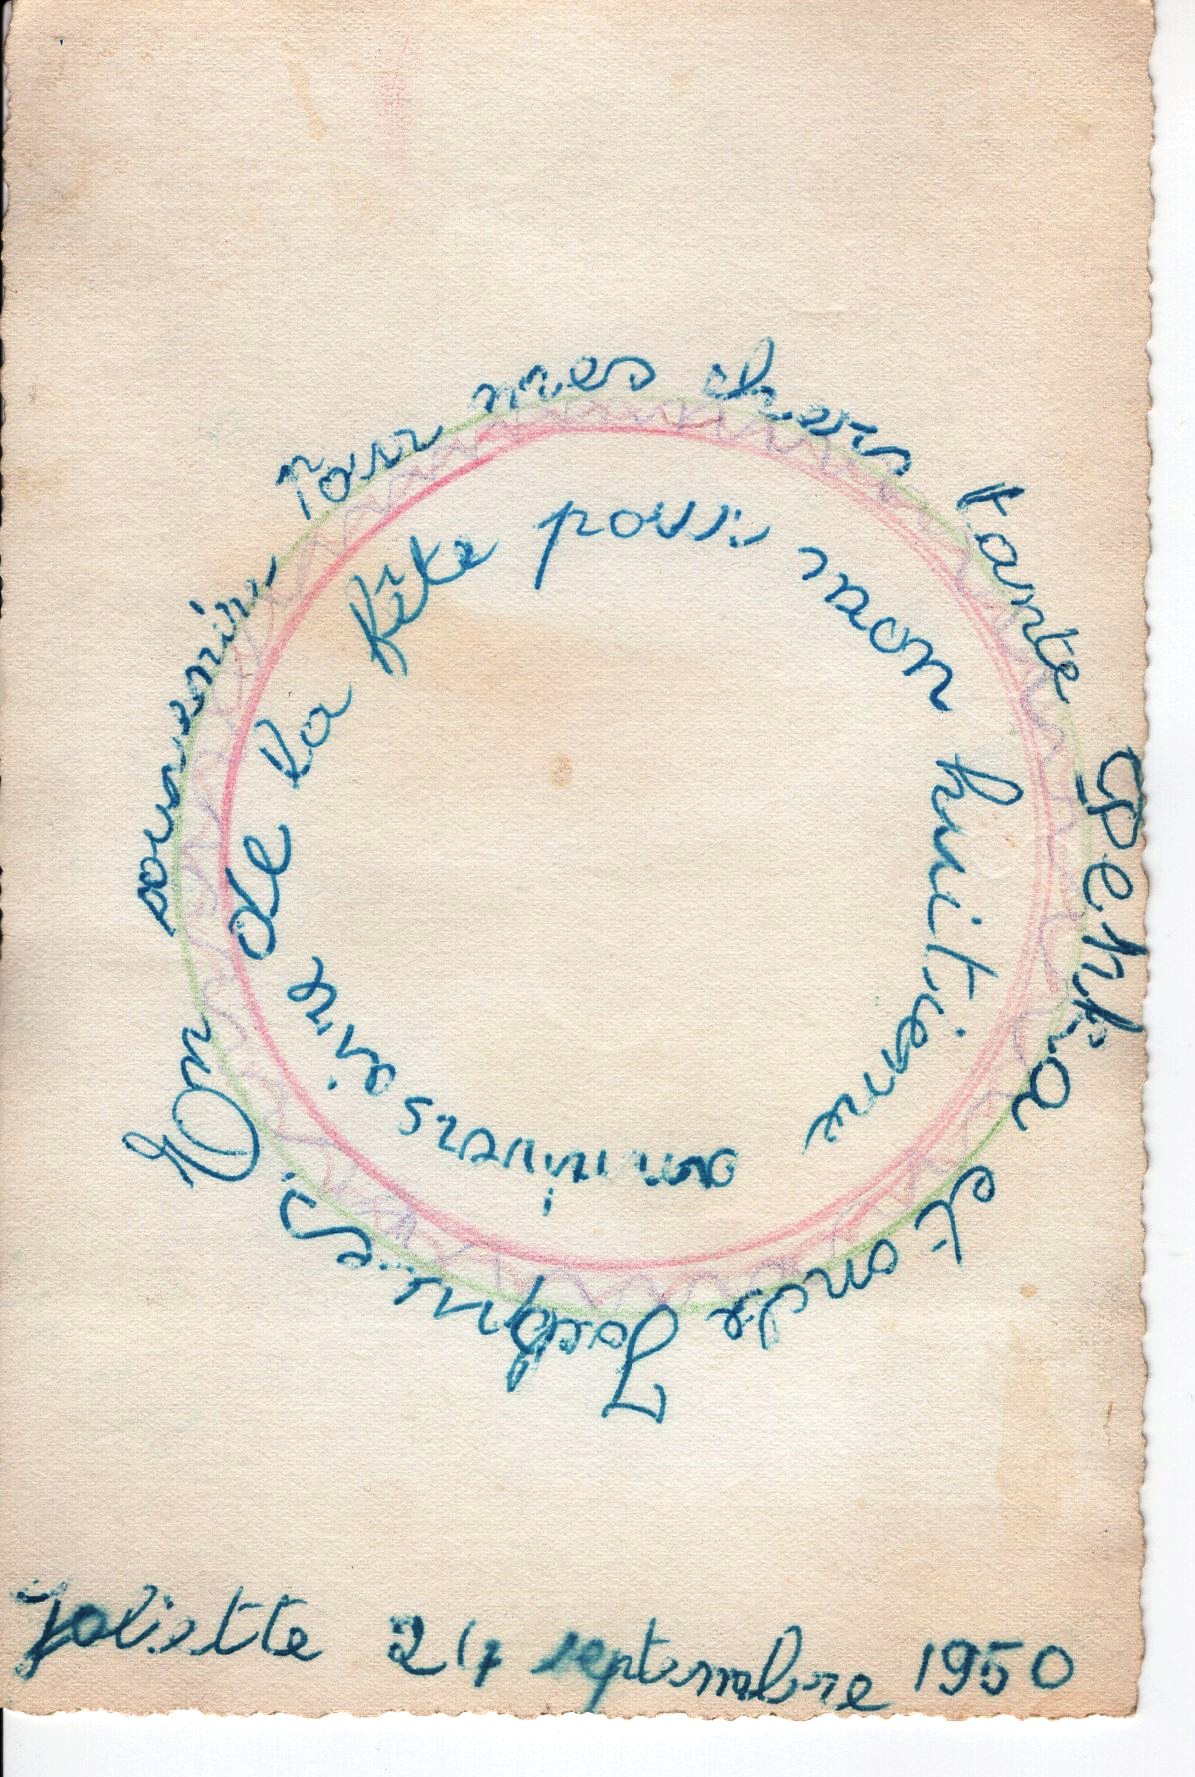 Un souvenir Pour mes chers tante et oncle Jacques.
de la fête pour mon huitieme anniversaire
Joliette 24 septembre 1950